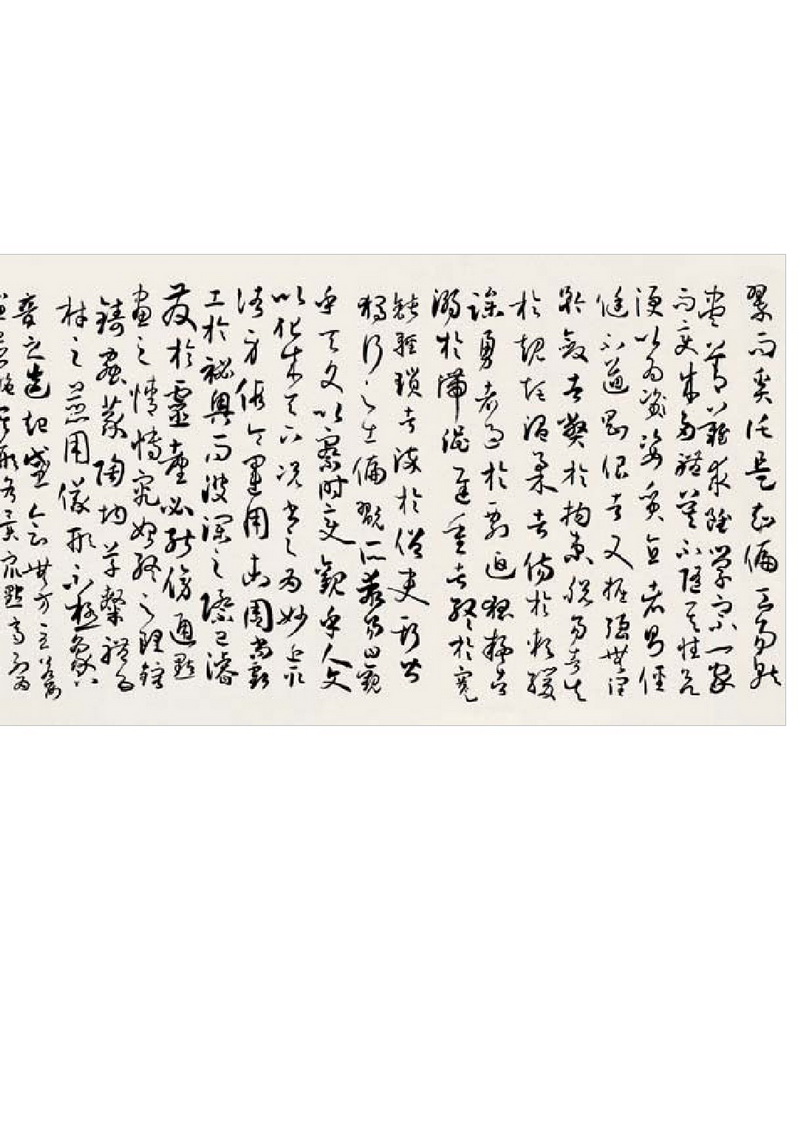 翠而奚託是知偏工易就
盡善難求雖學宗一家
而變成多體莫不隨其性欲
便以為姿質直者則俓
侹不遒剛佷者又掘強無潤
矜斂者弊於拘束脫易者失
於規矩溫柔者傷於軟緩
躁勇者過於剽迫狐疑者
溺於滯澀遲重者終於蹇
鈍輕瑣者染於俗吏斯皆
獨行之士偏翫所乖易曰觀
乎天文以察時變觀乎人文
以化成天下況書之為妙近取
諸身假令運用未周尚虧
工於祕奧而波瀾之際已濬
發於靈臺必能傍通點
畫之情博究始終之理鎔
鑄蟲篆陶均草隸體五
材之並用儀形不極象八
音之迭起感會無方至若數
畫並施其形各異眾點齊列為